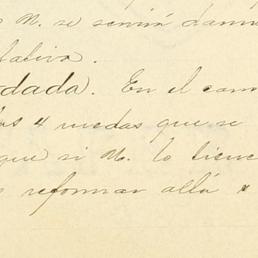 N. se servirá
tativo.
dada. En el cam
las 4 ruedas que se
que si N. lo tiene
reformar allá